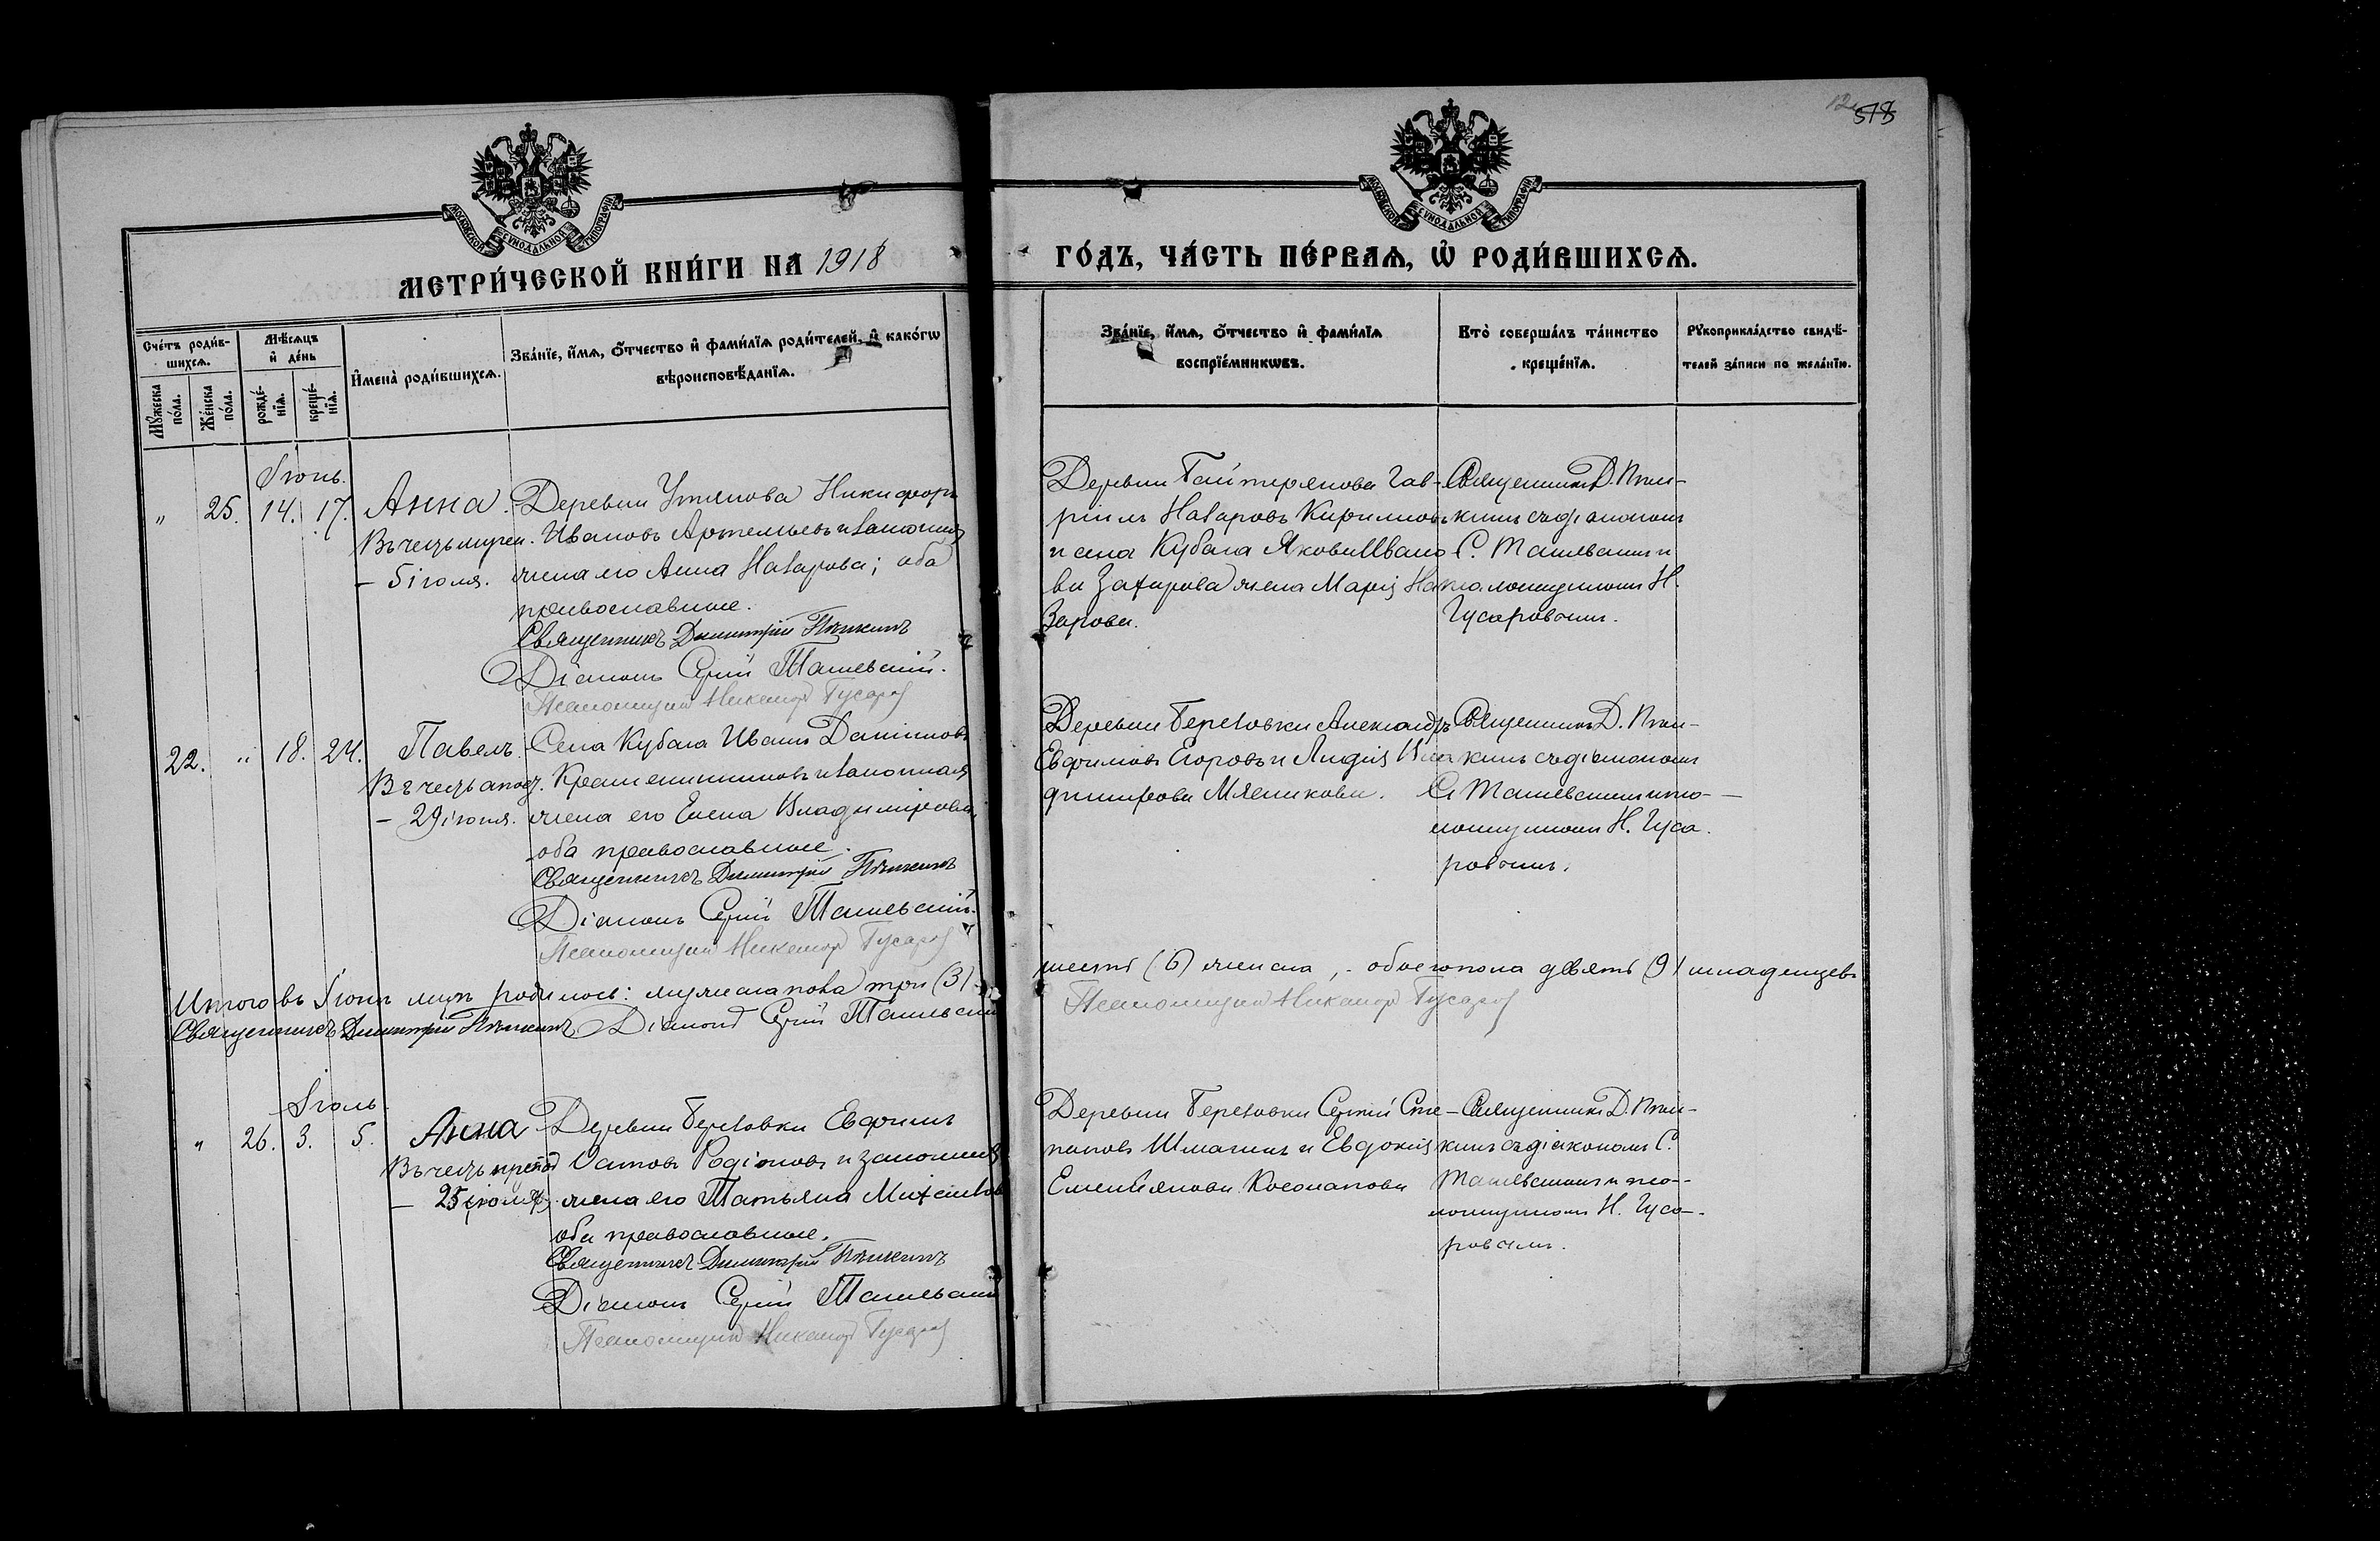 518
МОСКОВСКОЙ СѴНОДАЛЬНОЙ ТИПОГРАФІИ
МОСКОВСКОЙ СѴНОДАЛЬНОЙ ТИПОГРАФІИ
МЕТРИ́ЧЕСКОЙ КНИ́ГИ НА 1918
ГО́ДЪ, ЧА́СТЬ ПЕ́РВАѦ, Ѡ҆ РОДИ́ВШИХСѦ.
Сче́тъ роди́в-
шихсѧ.
Мꙋ́жеска
по́ла.
Же́нска
по́ла.
Мѣ́сѧцъ
и҆ де́нь
рожде́-
нїѧ.
креще́-
нїѧ.
И҆мена̀ роди́вшихсѧ.
Зва́нїе, и҆́мѧ, ѻ҆́тчество и҆ фами́лїѧ роди́телей, и҆ како́гѡ
вѣроисповѣ́данїѧ.
Зва́нїе, и҆́мѧ, ѻ҆́тчество и҆ фами́лїѧ
воспрїе́мникѡвъ.
Кто̀ соверша́лъ та́инство
креще́нїѧ.
Рꙋкоприкла́дство свидѣ́-
телей за́писи по жела́нїю.
Іюнь.
„ 25. 14. 17. Анна. Деревни Утянова Никифоръ
Въ честь мучен. Ивановъ Артемьевъ и законная
– 5 іюля. жена его Анна Назарова; оба
православные.
Священникъ Димитрій Пѣшкинъ
Діаконъ Сергій Ташевскій.
Псаломщикъ Никаноръ Гусаровъ
Деревни Гав-
ріилъ Назаровъ Кириловъ
и села Кубаса Якова Ивано-
ва Захарова жена Марія На-
зарова.
Священникъ Д. Пѣш-
кинъ съ діакономъ
С. Ташевскимъ и
псаломщикомъ Н.
Гусаровымъ.
22. „ 18. 24. Павелъ. Села Кубаса Иванъ Даниловъ
Въ честь апост. Крашенинниковъ и законная
– 29 іюня. жена его Елена Владимірова,
оба православные.
Священникъ Димитрій Пѣшкинъ
Діаконъ Сергій Ташевскій.
Псаломщикъ Никаноръ Гусаровъ
Деревни Березовки Александръ
Евфимовъ Егоровъ и Лидія Вла-
димірова Мясникова.
Священникъ Д. Пѣш-
кинъ съ діакономъ
С. Ташевскимъ и пса-
ломщикомъ Н. Гуса-
ровымъ.
Итого въ Іюнѣ мцѣ родилось: мужеска пола три (3)
шесть (6) женска, - обоего пола девять (9) младенцевъ
Священникъ Димитрій Пѣшкинъ Діаконъ Сергій Ташевскій
Псаломщикъ Никаноръ Гусаровъ
Іюль.
„ 26. 3. 5. Анна Деревни Березовки Евфимъ
Въ честь Родіоновъ и законная
– 25 іюля. жена его Татьяна Михайлова
оба православные.
Священникъ Димитрій Пѣшкинъ
Діаконъ Сергій Ташевскій
Псаломщикъ Никаноръ Гусаровъ
Деревни Березовки Сергій Сте-
пановъ Шмагинъ и Евдокія
Емельянова
Священникъ Д. Пѣш-
кинъ съ діакономъ С.
Ташевскимъ и пса-
ломщикомъ Н. Гуса-
ровымъ.